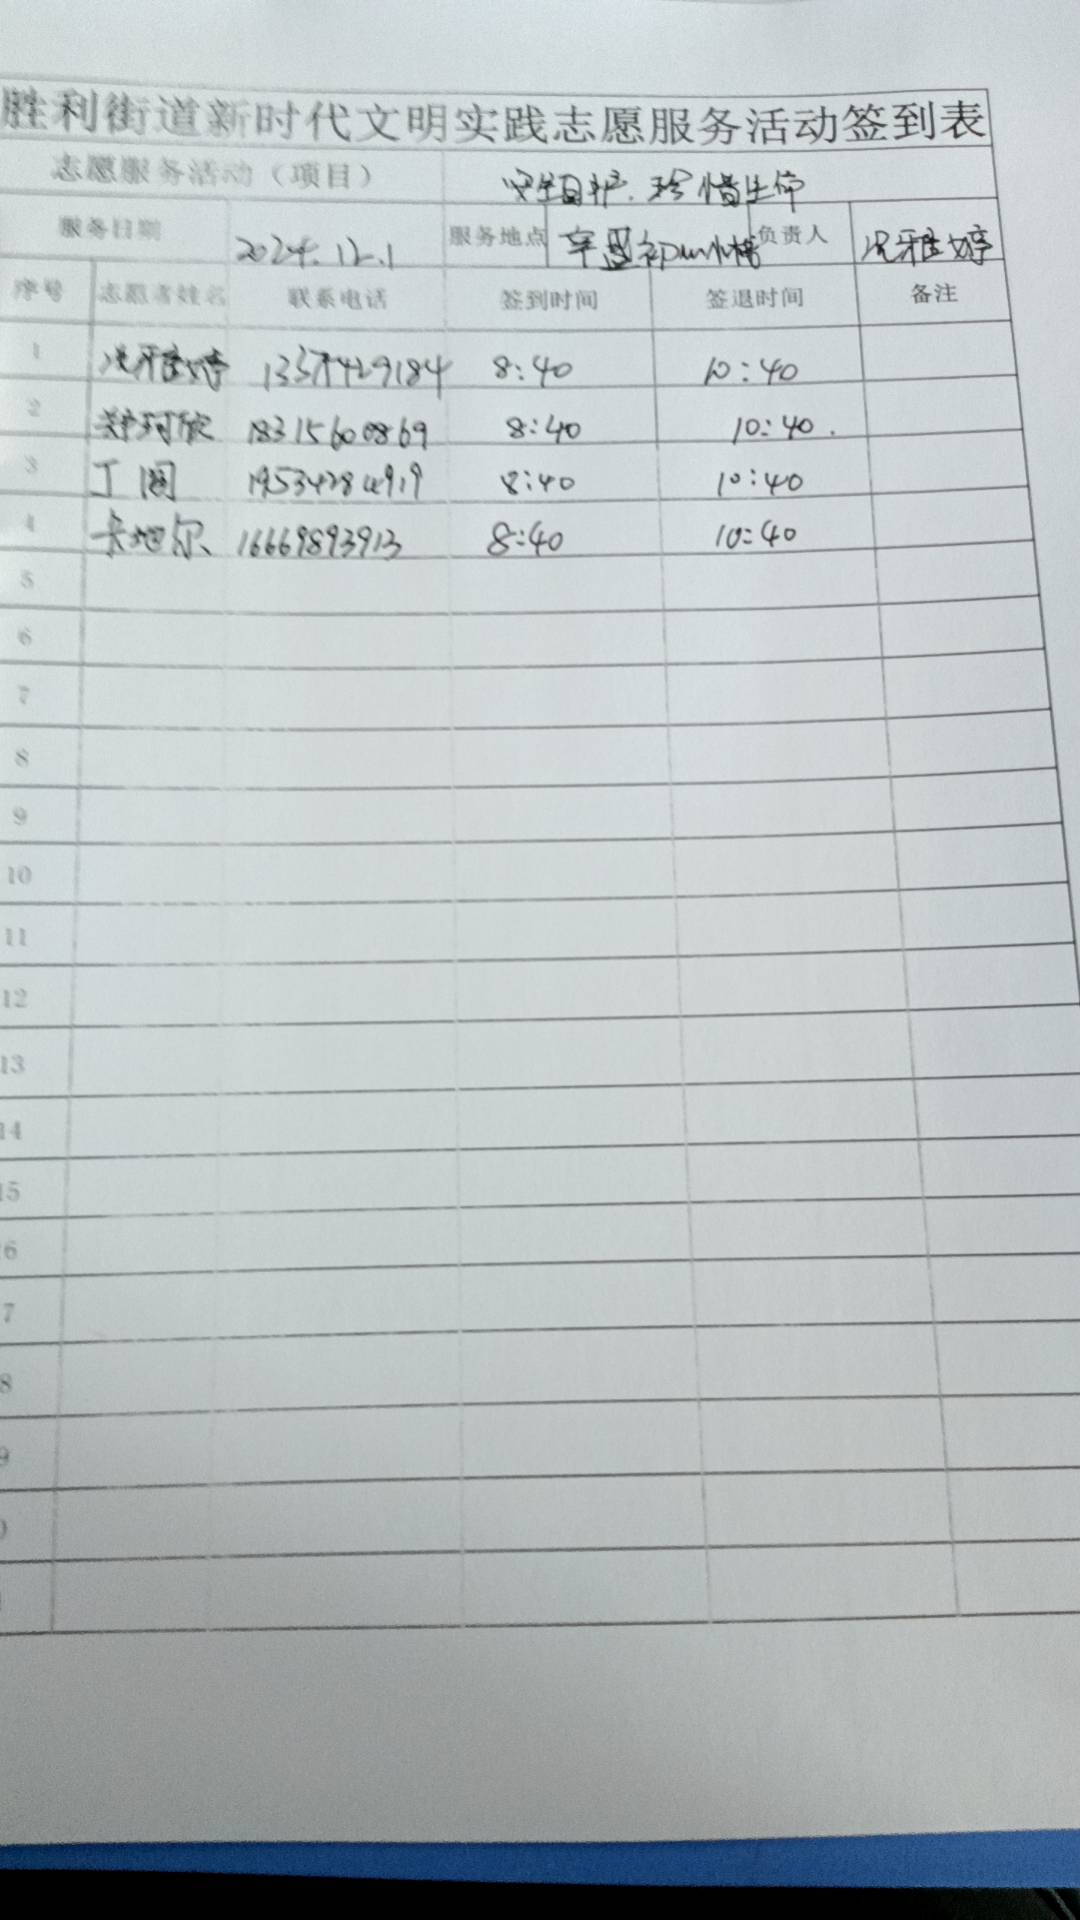 胜利街道新时代文明实践志愿服务活动签到表
志愿服务活动（项目） 安全自护.珍惜生命
服务日期 2024.12.1 服务地点 负责人 况雅婷
序号 志愿者姓名 联系电话 签到时间 签退时间 备注
1 况雅婷 8:40 10:40
2 郑珂欣 18315600869 8:40 10:40.
3 丁 8:40 10:40
4 卡地尔 16669893913 8:40 10:40
5
6
7
8
9
10
11
12
13
14
15
6
7
8
9